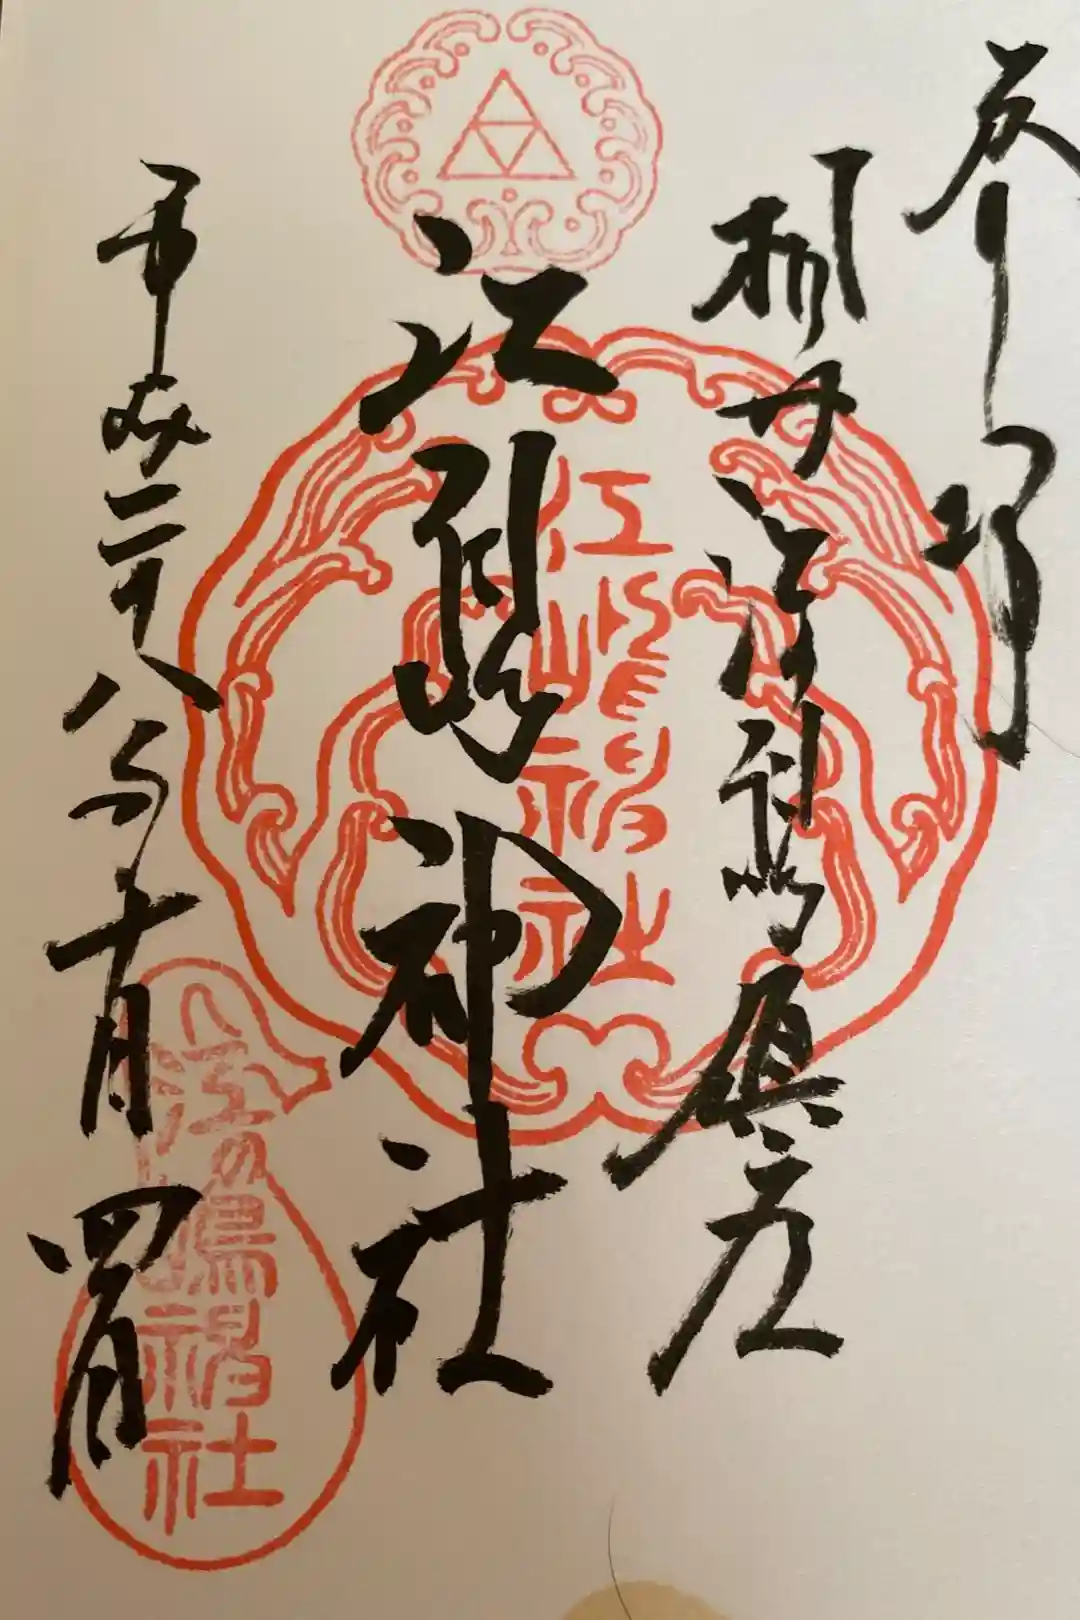 奉拝
相州江
江島神社
平成二十八年十月四日
江嶋神社
江の嶋神社